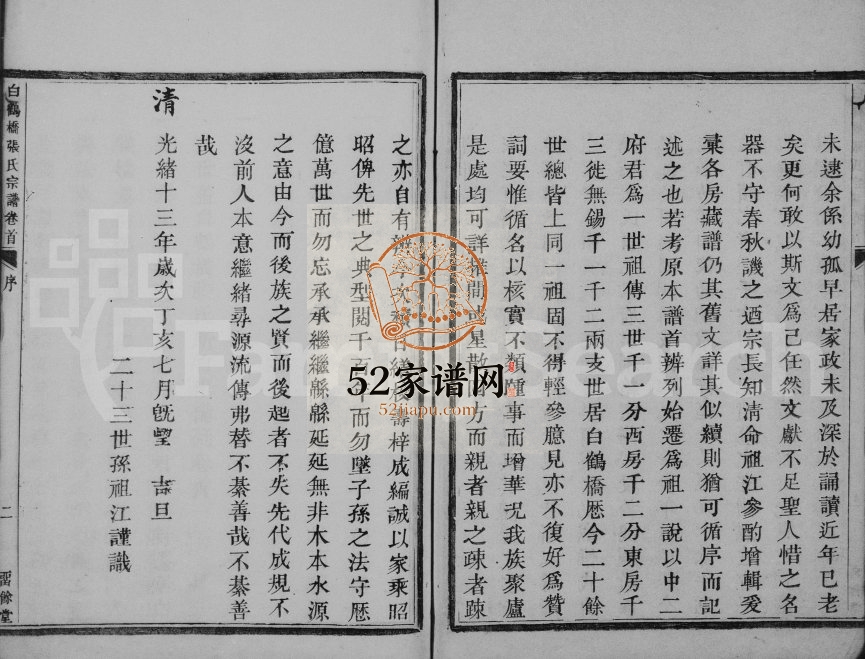 未逮余係幼孤早居家政未及深於誦讀近年已老
矣更何敢以斯文爲己任然文獻不足聖人惜之名
器不守春秋譏之迺宗長知清命祖江參酌增輯爰
稾各房藏譜仍其舊文詳其似續則猶可循序而記
述之也若考原本譜首辨列始遷爲祖一說以中二
府君爲一世祖傳三世千一分西房千二分東房千
三徙無錫千一千二兩支世居白鶴橋歷今二十餘
世總皆上同一祖固不得輕參臆見亦不復好爲贊
詞要惟循名以核實不類踵事而增華况我族聚廬
是處均可詳 間或星散 方而親者親之疎者踈
之亦自有 次 梓成編誠以家乘昭
昭俾先世之典型閱千百 而勿墜子孫之法守歷
億萬世而勿忘承承繼繼緜緜延延無非木本水源
之意由今而後族之賢而後起者不失先代成規不
沒前人本意繼緒尋源流傳弗替不綦善哉不綦善
哉
清
光緒十三年歲次丁亥七月旣望 吉旦
二十三世孫祖江謹識
白鶴橋張氏宗譜卷首
序
二
餘堂
52家谱网
52jiapu.com
FamilySearch